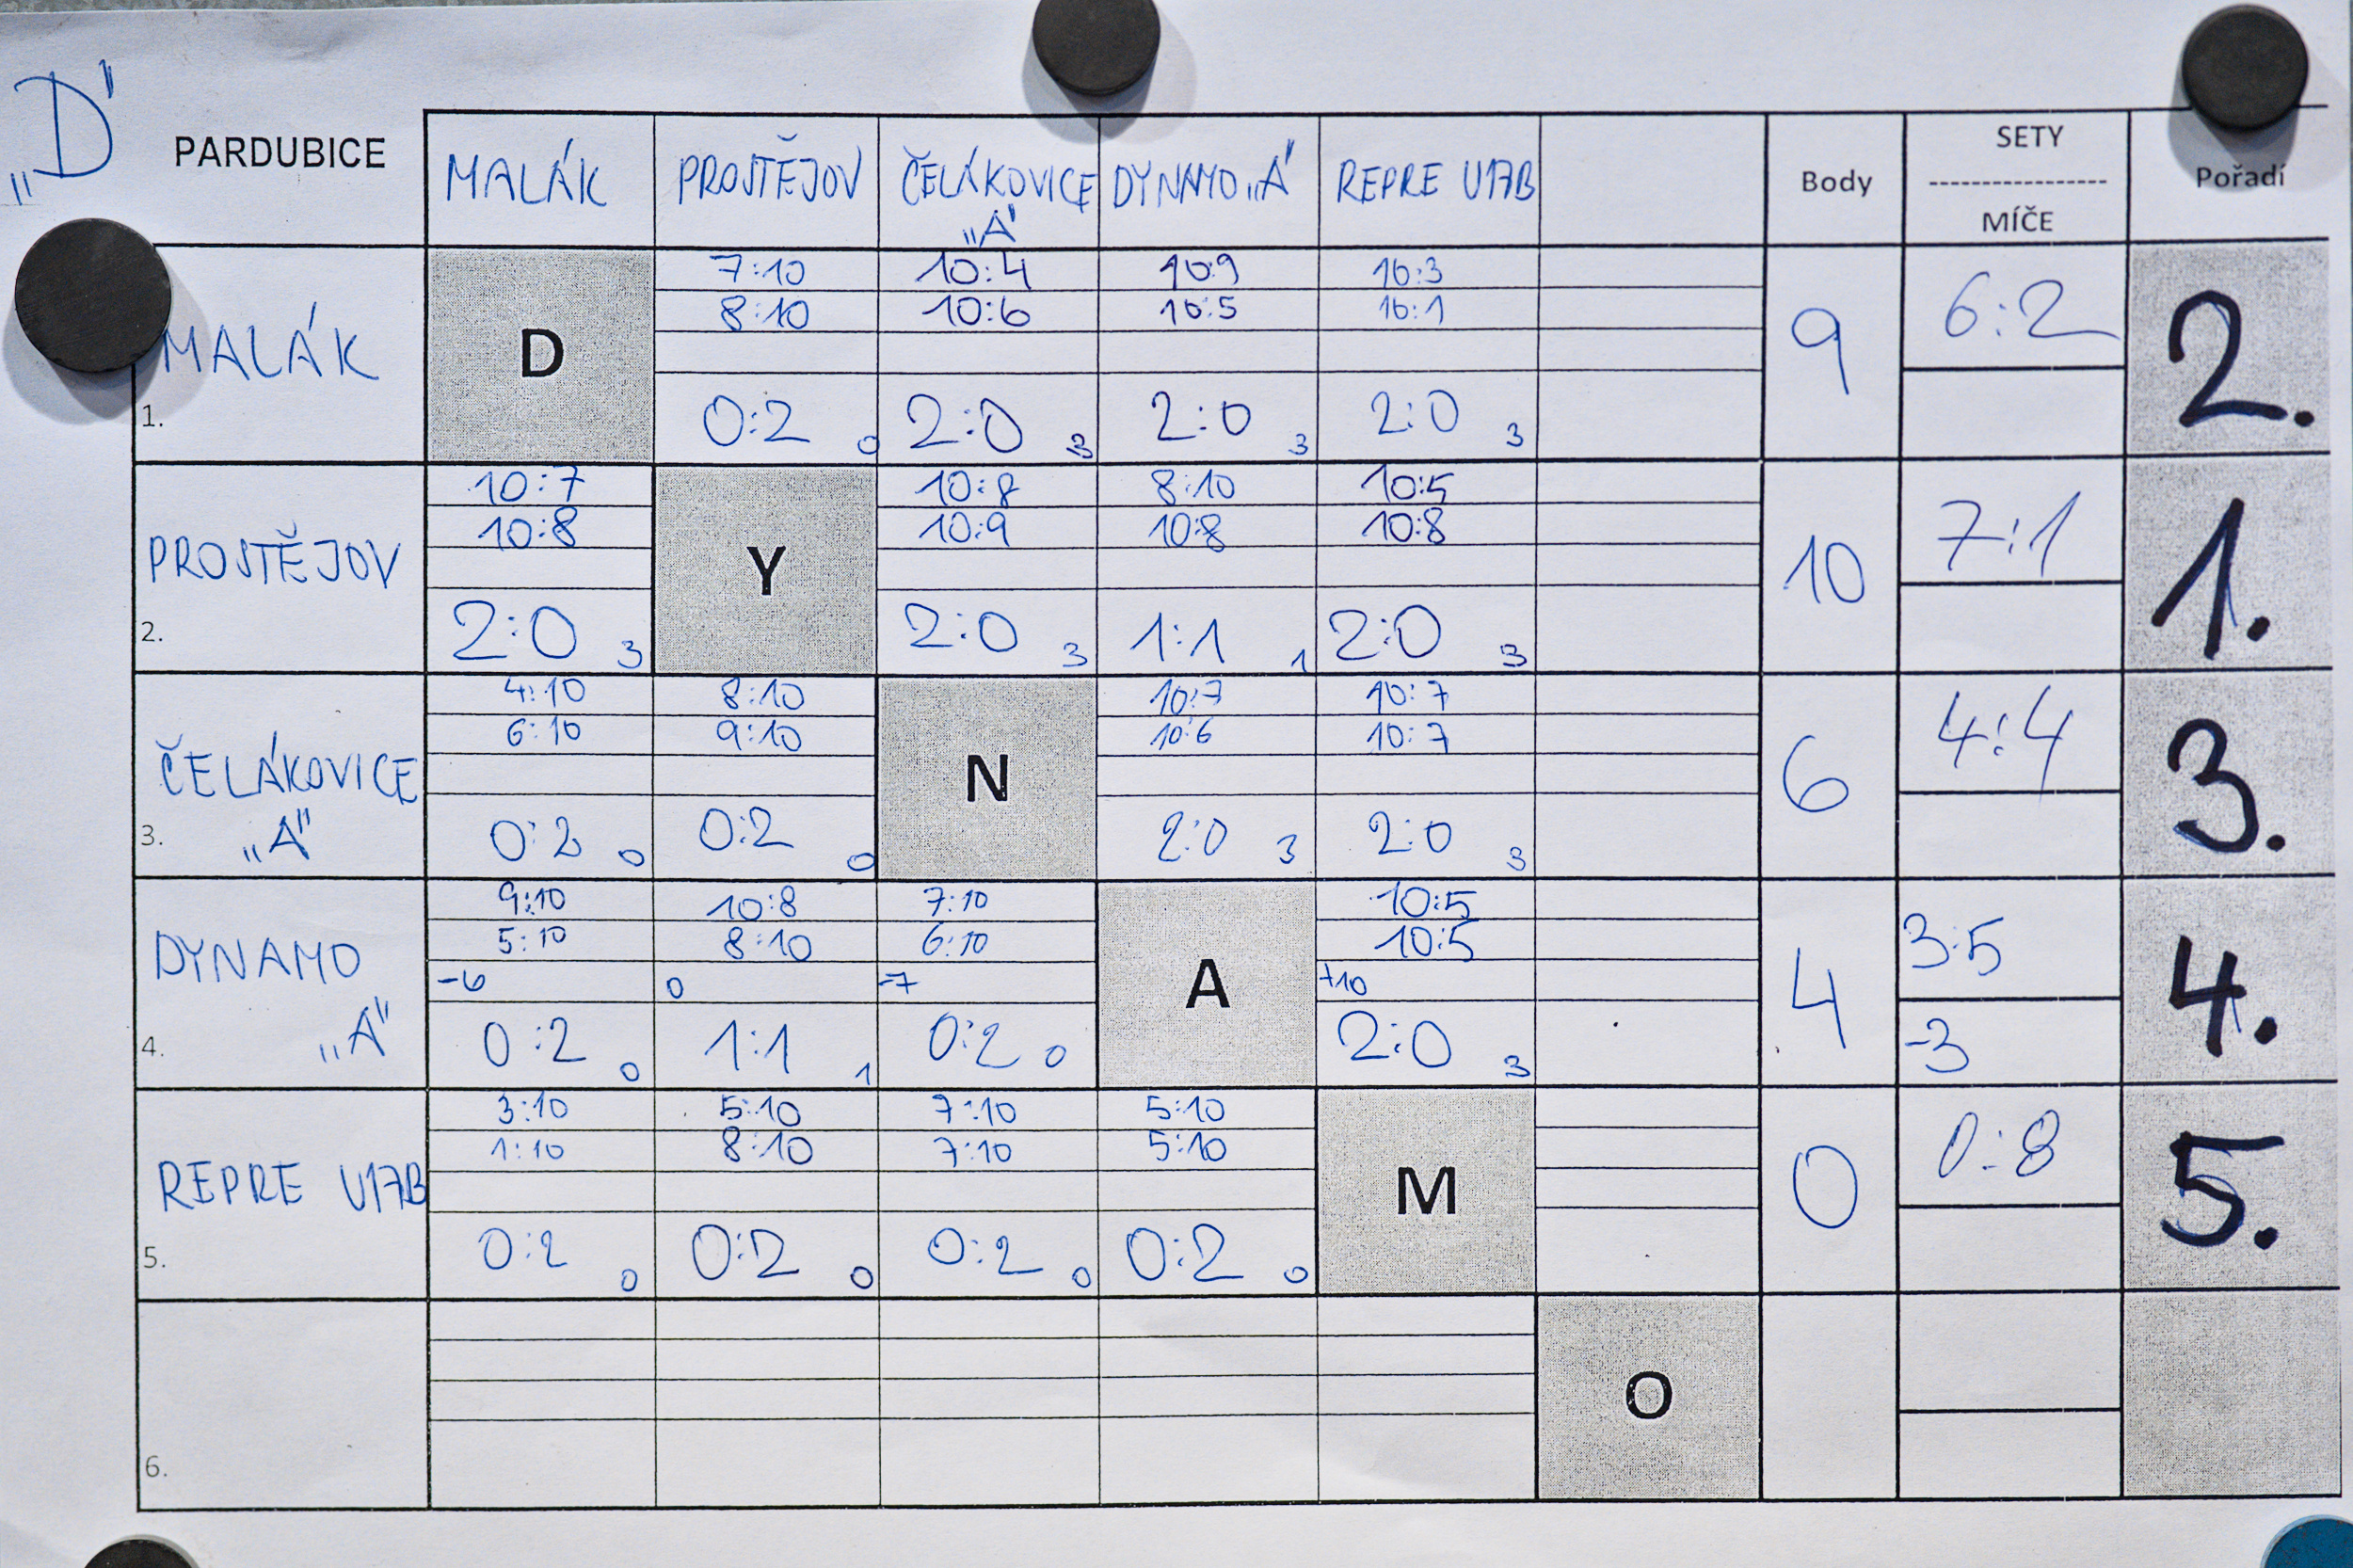 „D"
PARDUBICE
MALÁK PROSTĚJOV ČELÁKOVICE „A" DYNAMO „A" REPRE U17B Body SETY MÍČE Pořadí
MALÁK
1.
D
7:10 10:4 10:9 10:3
8:10 10:6 10:5 10:1
0:2 0 2:0 3 2:0 3 2:0 3
9
6:2
2.
PROSTĚJOV
2.
10:7 10:8 8:10 10:5
10:8 10:9 10:8 10:8
Y
2:0 3 2:0 3 1:1 1 2:0 3
10
7:1
1.
ČELÁKOVICE
„A"
3.
4:10 8:10 10:7 10:7
6:10 9:10 10:6 10:7
N
0:2 0 0:2 0 2:0 3 2:0 3
6
4:4
3.
DYNAMO
„A"
4.
9:10 10:8 7:10 10:5
5:10 8:10 6:10 10:5
-6 0 -7 +10
A
0:2 0 1:1 1 0:2 0 2:0 3
4
3:5
-3
4.
REPRE U17B
5.
3:10 5:10 7:10 5:10
1:10 8:10 7:10 5:10
M
0:2 0 0:2 0 0:2 0 0:2 0
0
0:8
5.
6.
O